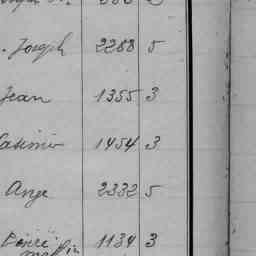 Joseph 2288 5
Jean 1355 3
Casimir 1454 3
Ange 2332 5
Pierre 1134 3